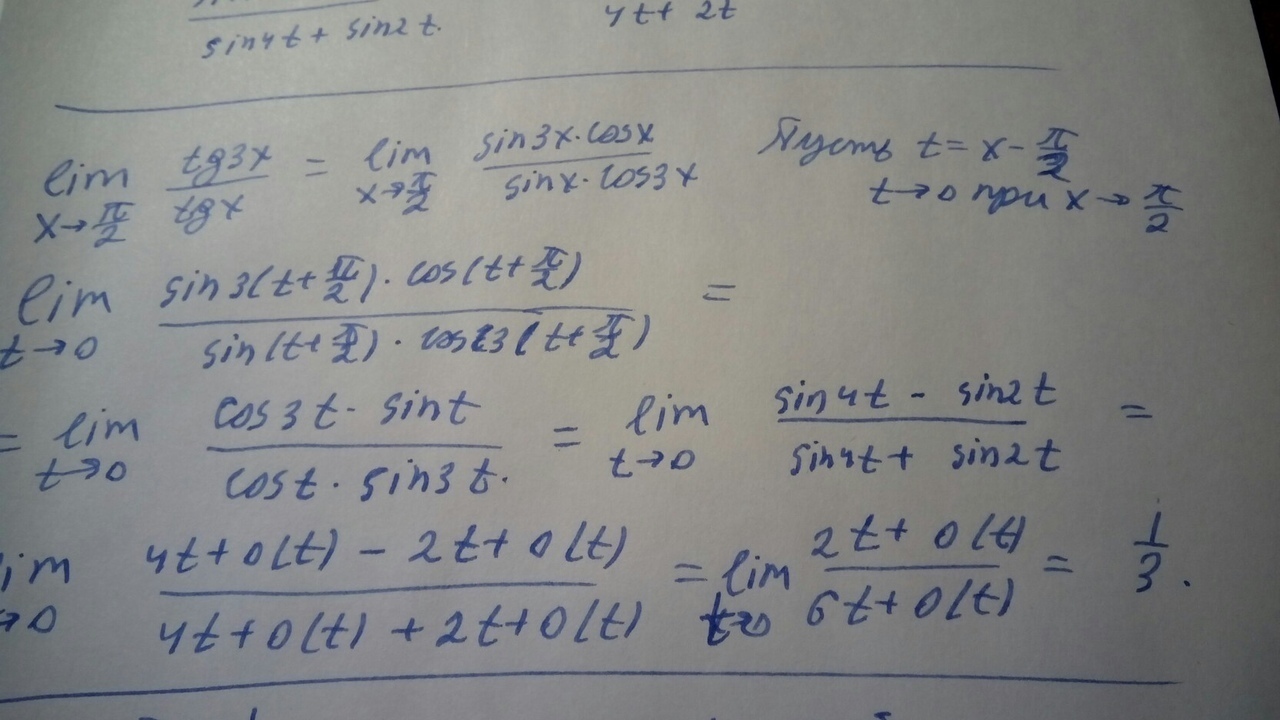 sin4t + sin2t. 4t + 2t
lim x→π/2 tg3x/tgx = lim x→π/2 sin3x·cosx/sinx·cos3x Пусть t = x - π/2
t→0 при x→π/2
lim t→0 sin3(t+π/2)·cos(t+π/2)/sin(t+π/2)·cos3(t+π/2) =
= lim t→0 cos3t·sint/cost·sin3t. = lim t→0 sin4t - sin2t/sin4t + sin2t =
lim →0 4t+0(t) - 2t+0(t)/4t+0(t) + 2t+0(t) = lim t→0 2t+0(t)/6t+0(t) = 1/3.